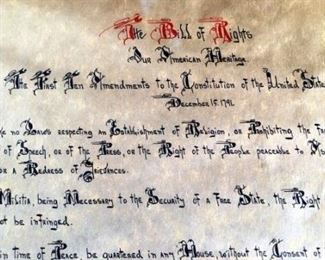 The Bill of Rights
Our American Heritage
The First Ten Amendments to the Constitution of the United State
December 15, 1791
e no Laws respecting an Establishment of Religion, or Prohibiting the
of Speech, or of the Press, or the Right of the People peaceable to
or a Redress of Grievances.
Militia, being Necessary to the Security of a Free State, the Right
ot be infringed.
in time of Peace, be quartered in any House, without the Consent of